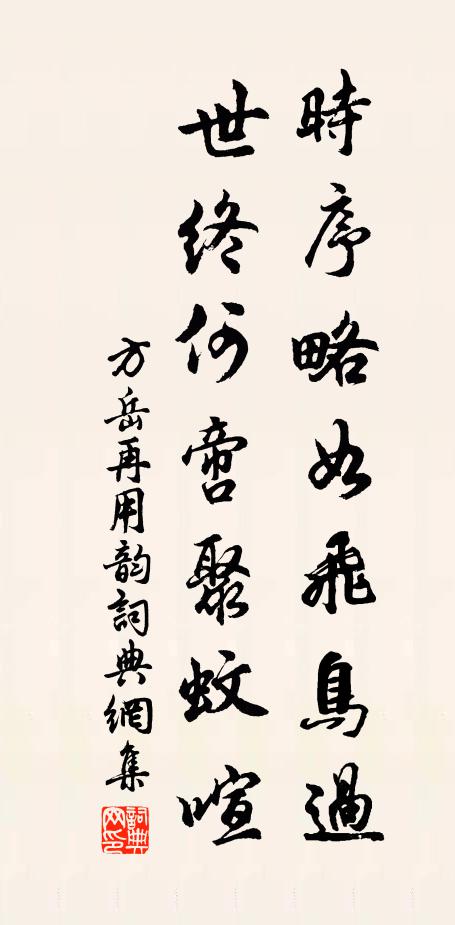 時序略如飛鳥過
世終何啻聚蚊喧
方岳再用韵詞典網集
詞典網印